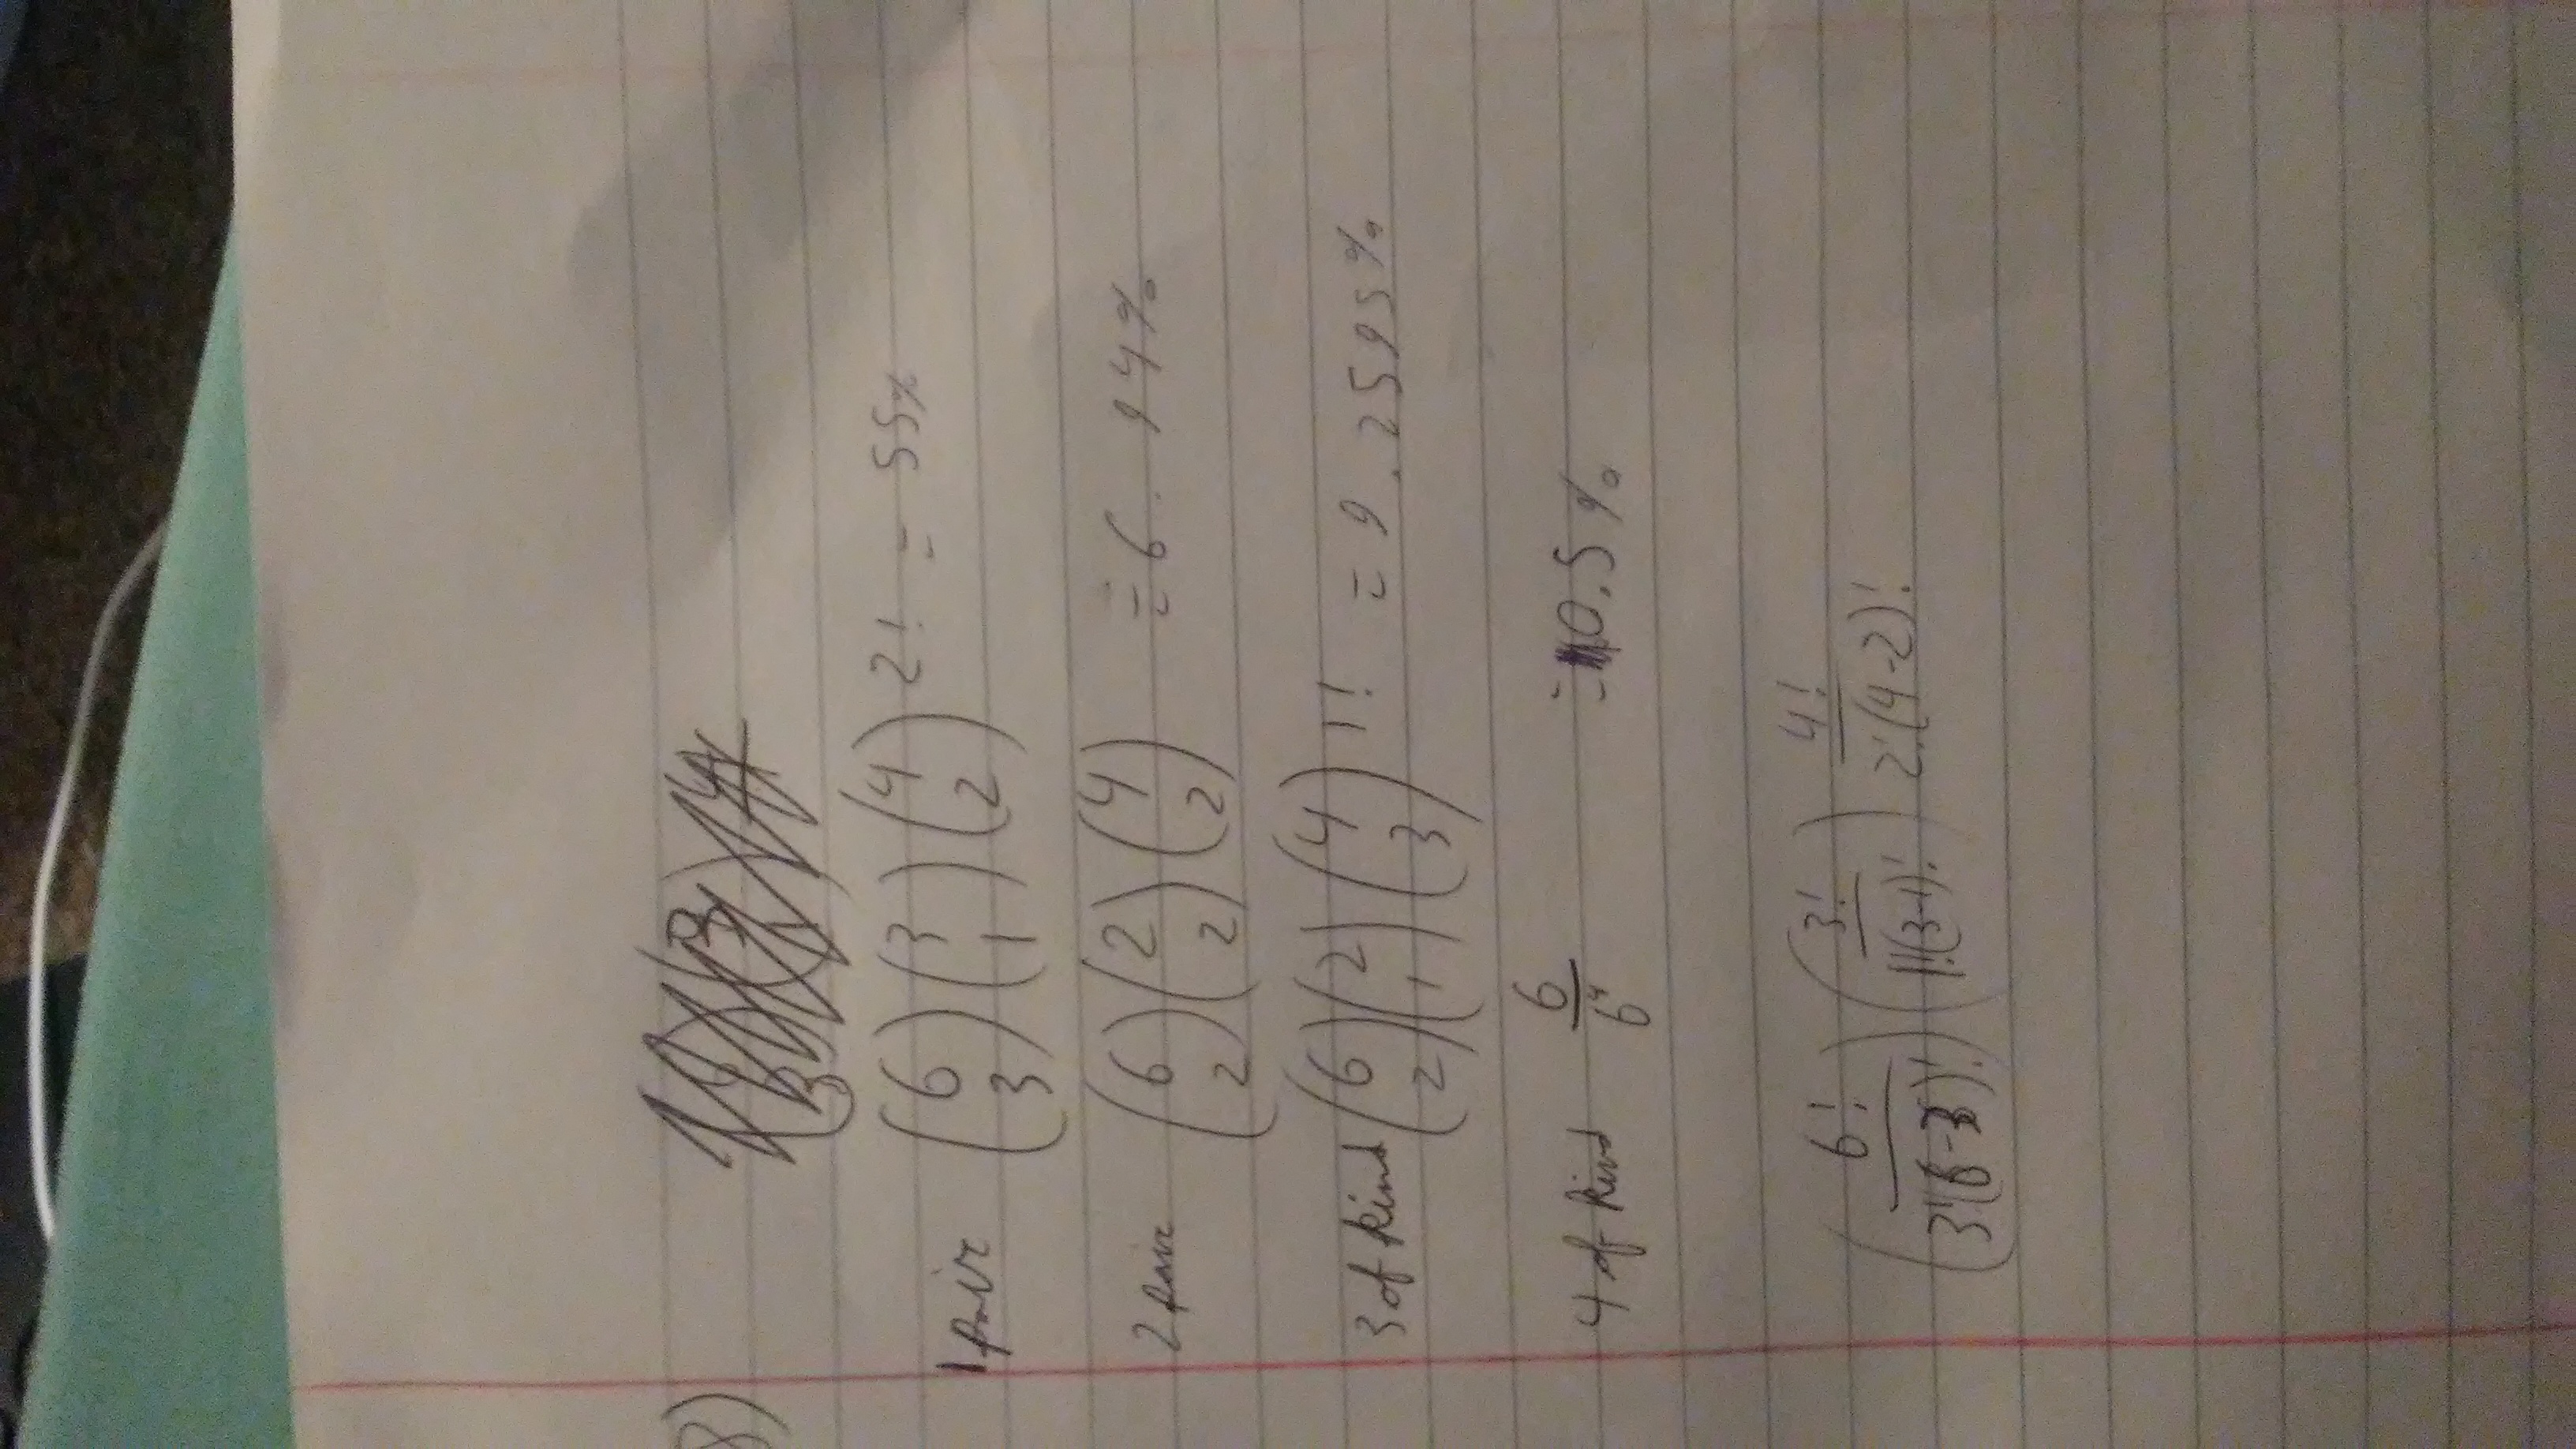 8)
1 pair (6 3) (3 1) (4 2) 2! = 55%
2 pair (6 2) (2 2) (4 2) = 6.94%
3 of kind (6 2) (2 1) (4 3) 1! = 9.2595%
4 of kind 6/6⁴ = 0.5%
(6!/3!(6-3)!) (3!/1!(3-1)!) 4!/2!(4-2)!